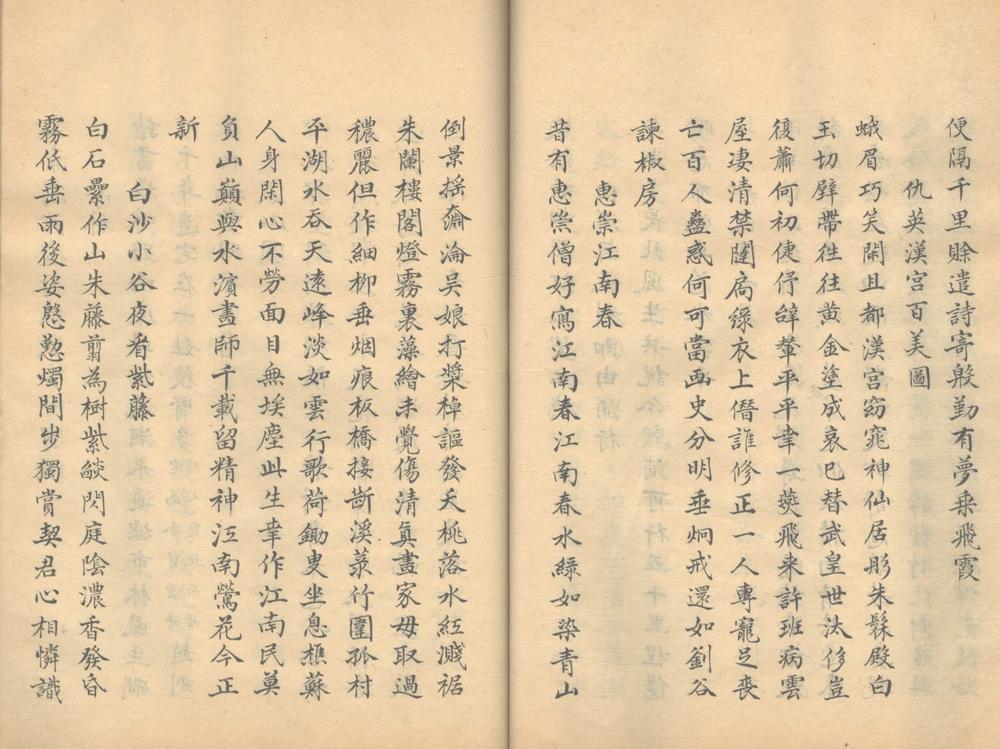 便隔千里賖遣詩寄殷勤有夢乗飛霞
仇英漢宮百美圖
蛾眉巧笑閑且都漢宫窈窕神仙居彤朱髹殿白
玉切壁帶往往黄金塗成哀已替武皇世法侈豈
復蕭何初倢伃辭輦平平幸一燕飛来許班病雲
屋凄清禁闥扃綠衣上僭誰修正一人専寵足喪
亡百人蠱惑何可當画史分明垂炯戒還如劉谷
諫椒房
惠崇江南春
昔有惠崇僧好寫江南春江南春水綠如染青山
倒景揺奫淪吴娘打槳棹謳發夭桃落水紅濺裾
朱闌樓閣燈霧裏藻繪未覺傷清真畫家毋取過
穠麗但作細柳垂烟痕板橋接斷溪菉竹圍孤村
平湖水吞天遠峰淡如雲行歌荷鋤叟坐息樵蘇
人身閑心不勞面目無埃塵此生幸作江南民莫
負山巔與水濵畫師千載留精神江南鶯花今正
新
白沙小谷夜看紫藤
白石壘作山朱藤翦為樹紫燄閃庭陰濃香發昏
霧低垂雨後姿慇懃燭間步獨賞契君心相憐識